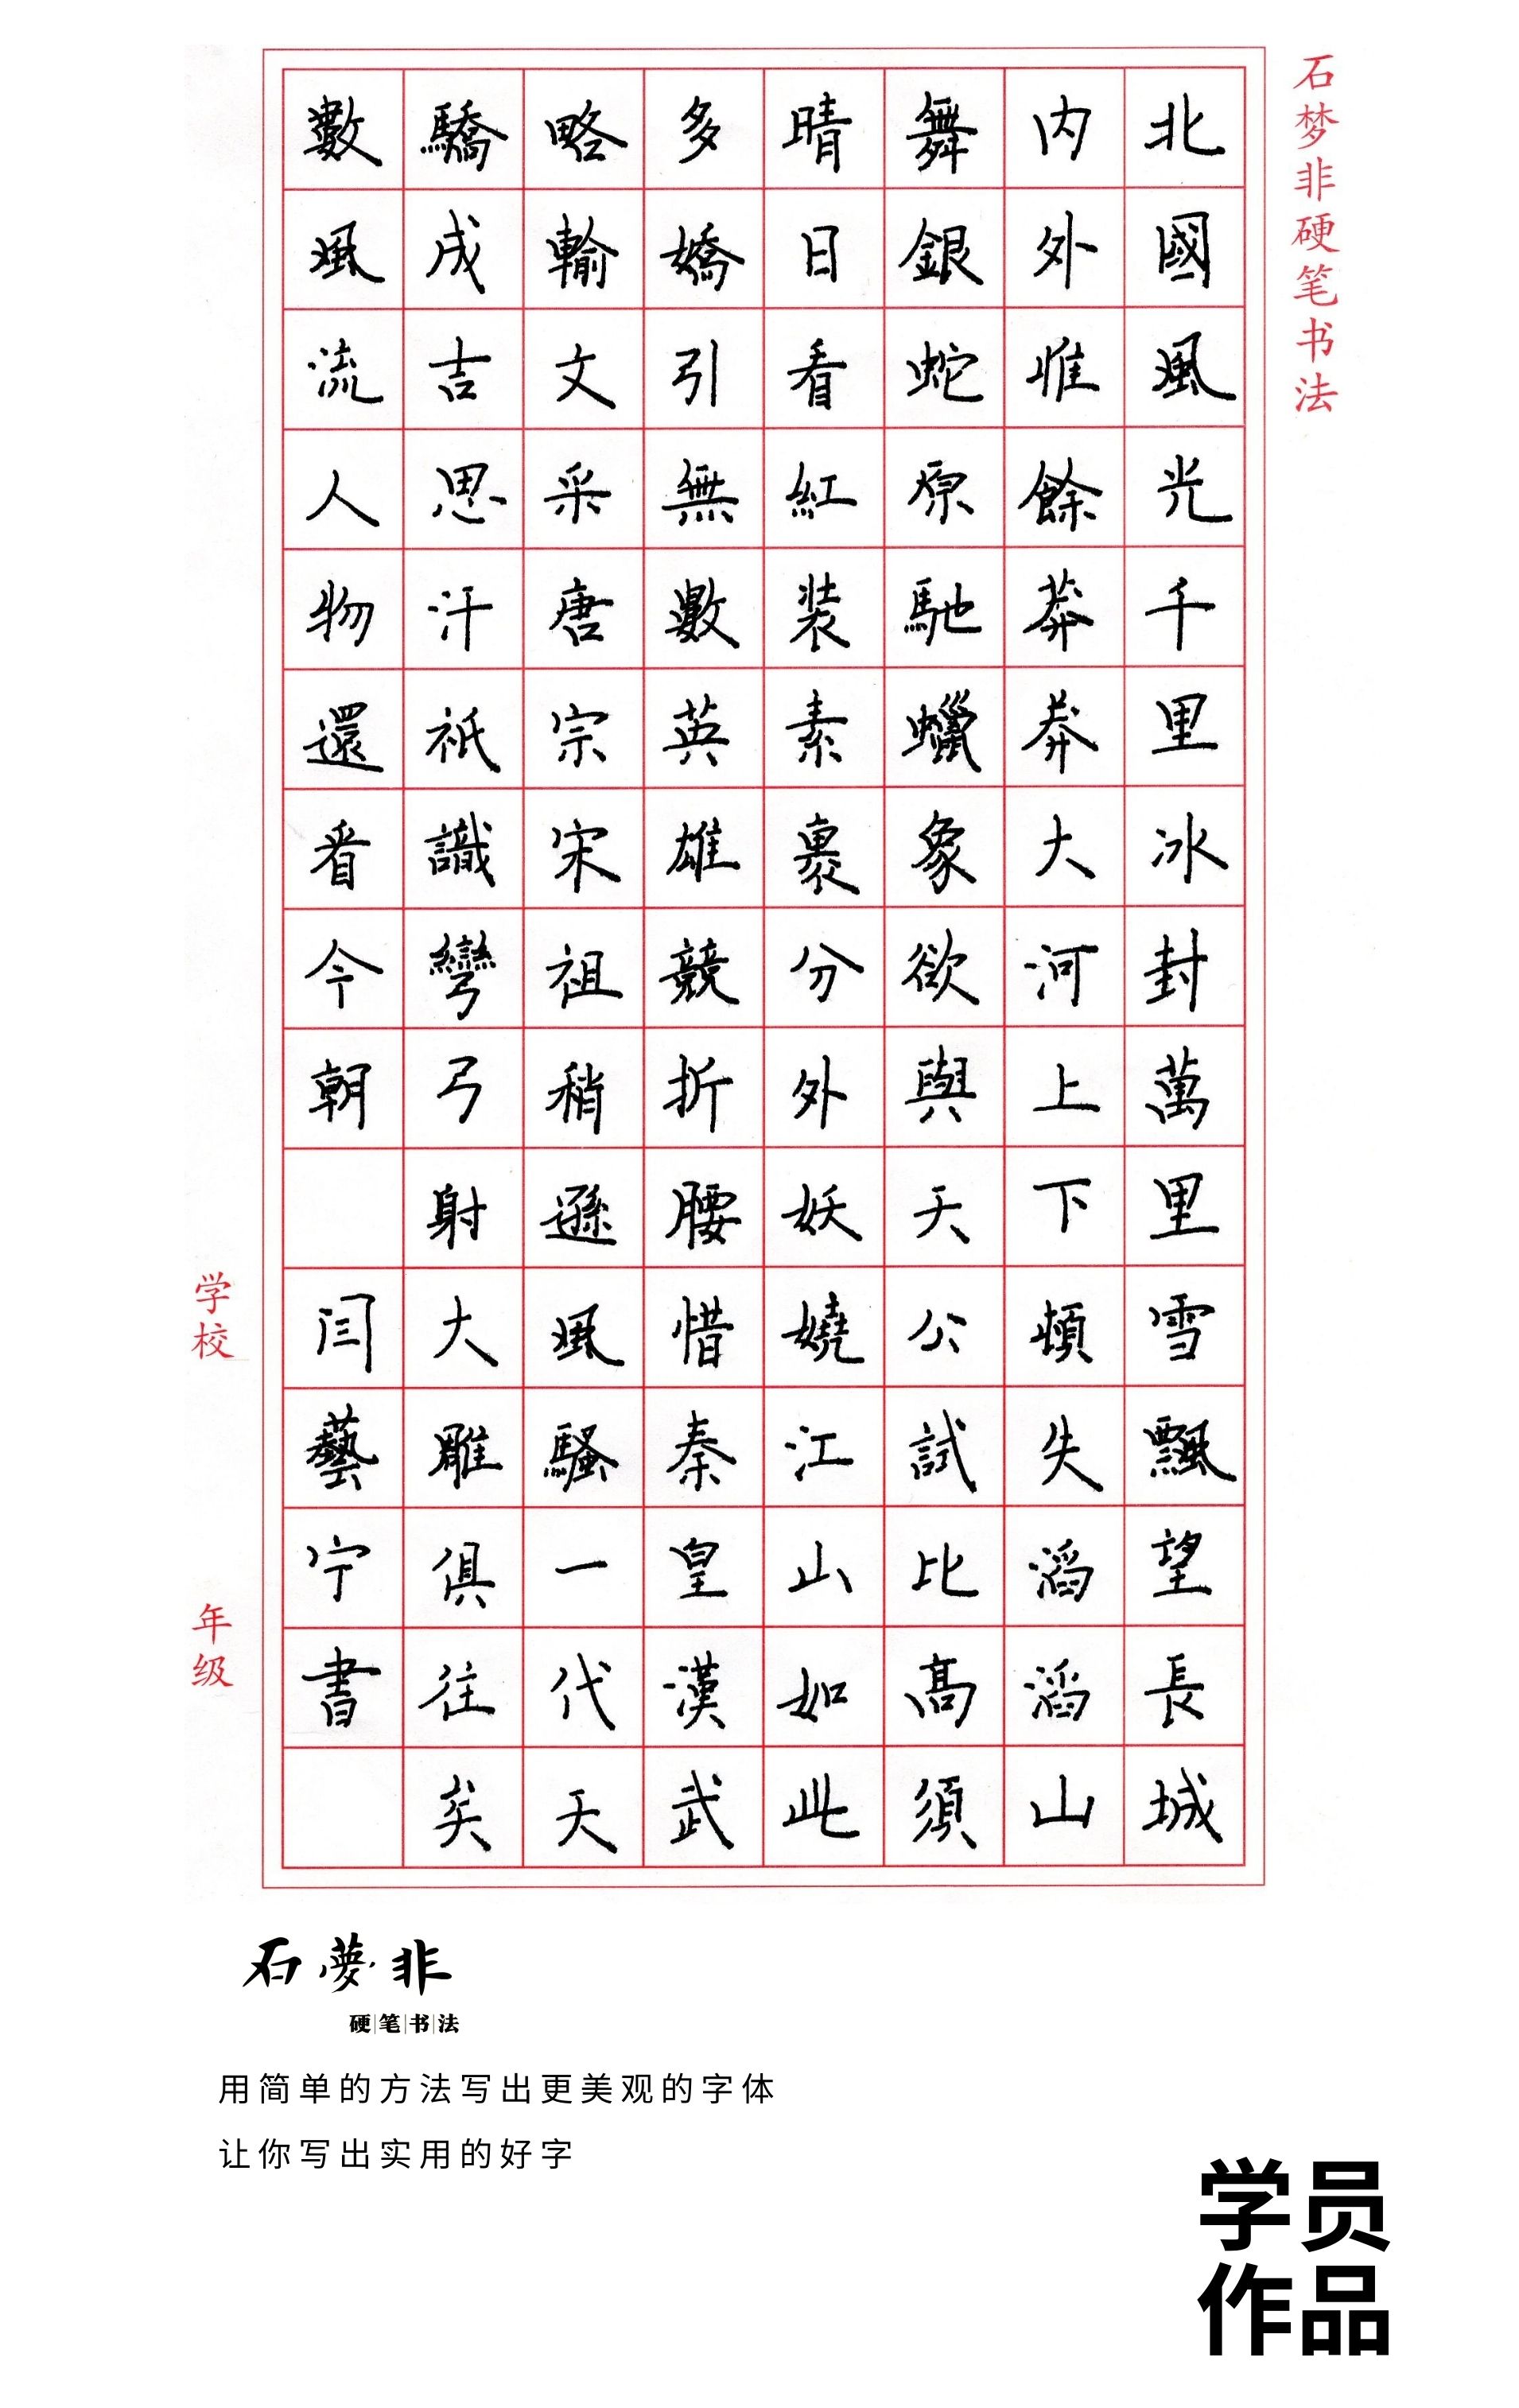 石梦非硬笔书法
北國風光千里冰封萬里雪飄望長城
内外惟餘莽莽大河上下頓失滔滔山
舞銀蛇原馳蠟象欲與天公試比高須
晴日看紅装素裹分外妖嬈江山如此
多嬌引無數英雄競折腰惜秦皇漢武
略輸文采唐宗宋祖稍遜風騷一代天
驕成吉思汗祇識彎弓射大雕俱往矣
數風流人物還看今朝 閆藝宁書
学校 年级
石夢非
硬笔书法
用简单的方法写出更美观的字体
让你写出实用的好字
学员
作品